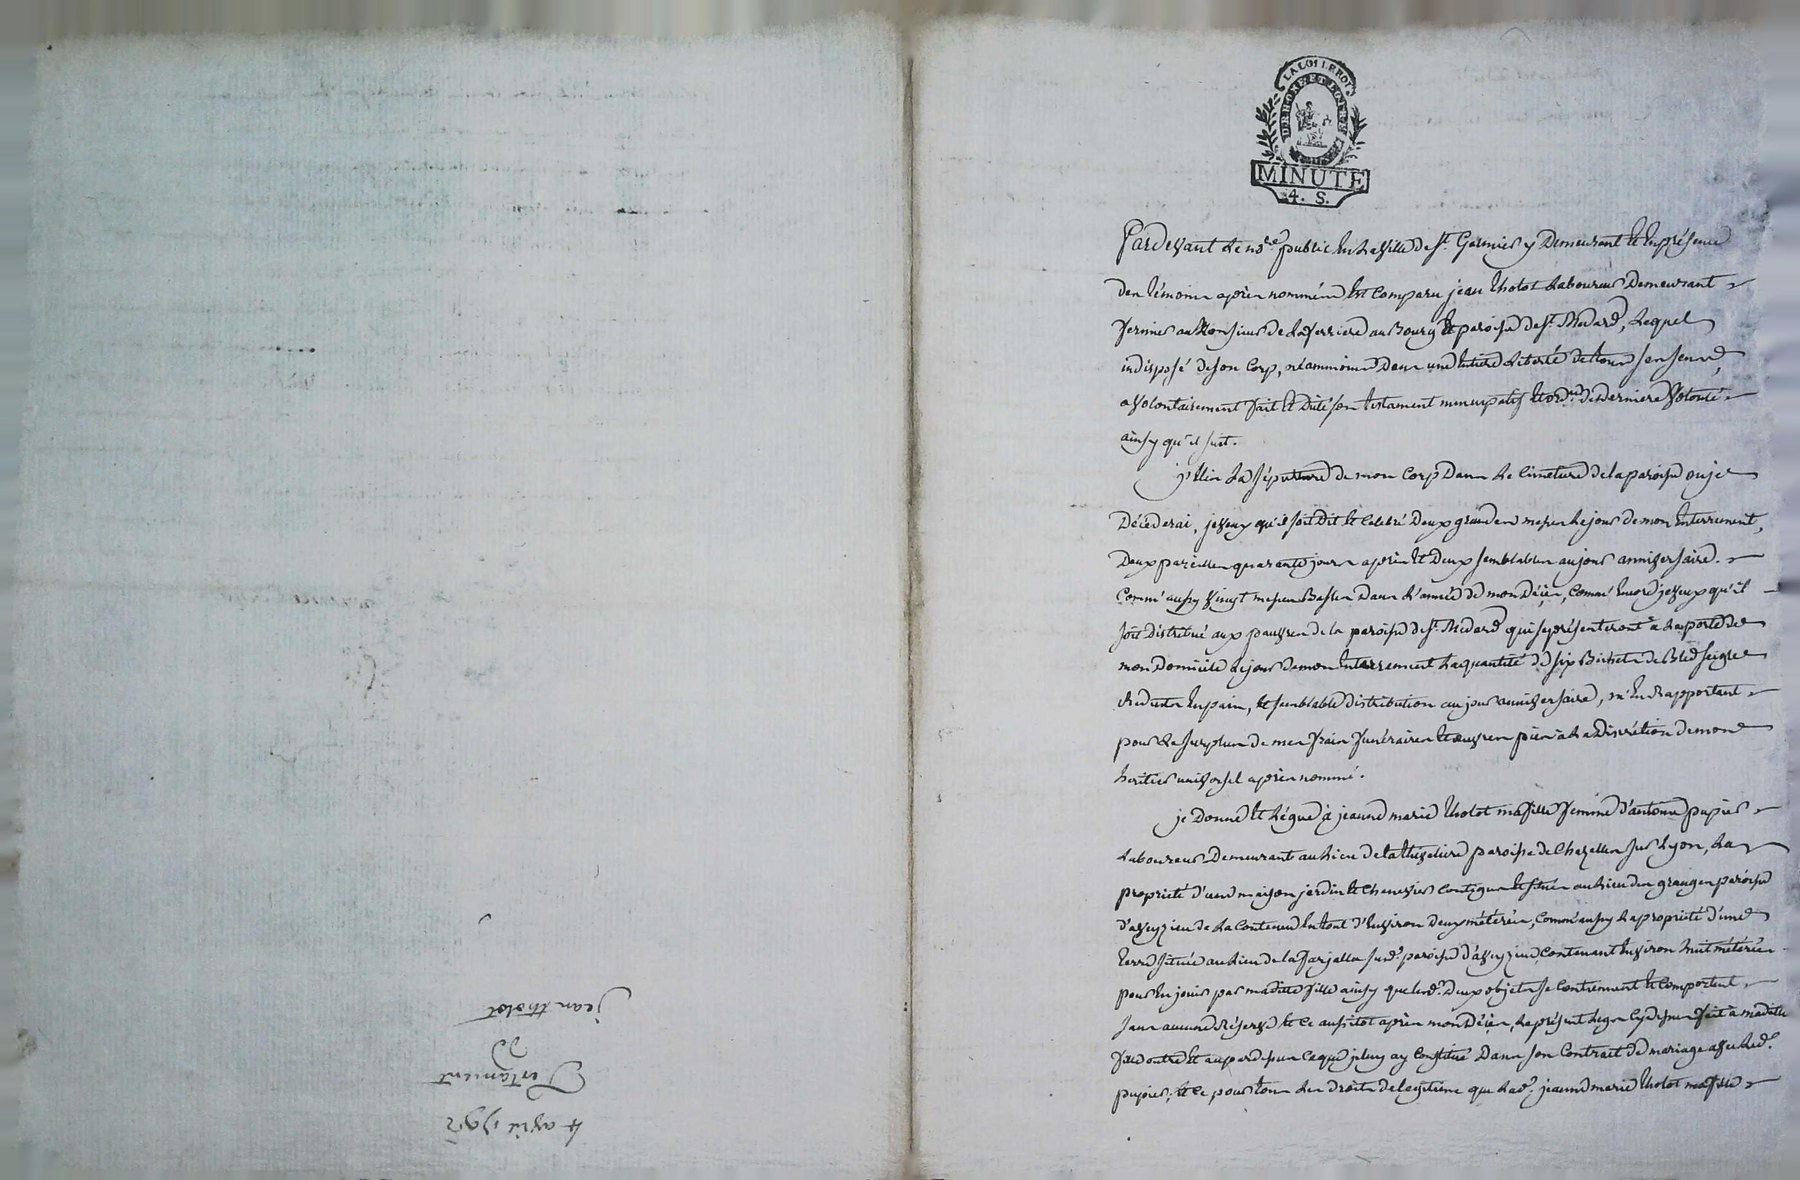 4 avril 1792
Testament
de
jean tholot
LA LOI LE ROI
DE RHONE ET LOIRE
MINUTE
4. S.
Pardevant le nore public en la ville de St. Galmier y Demeurant et En présence
des témoins après nommés Est Comparu jean tholot Laboureur Demeurant
fermier au Monsieur de La ferriere au Bourg et paroisse de St. Medard, Lequel
indisposé de son Corp, néammoins Dans une Entiere Liberté de tous ses sens,
a volontairement fait et Dité son testament nuncupatif et ord.re de derniere Volonté
ainsy qu'il suit.
j'Elis La sépulture de mon Corp Dans Le Cimetiere de la paroisse ou je
Décéderai, je veux qu'il soit Dit et Celebré Deux grandes messes le jour de mon Enterrement,
Deux pareilles quarante jours après et Deux semblables au jour anniversaire.
Comm' aussy vingt messes Basses Dans L'année de mon Décès, Comm' Encore je veux qu'il
soit distribué aux pauvres de la paroisse de St. Medard qui se présenteront à La porte de
mon Domicile Le jour de mon Enterrement La quantité de six Bichets de Bled seigle
Reduits En pain, et semblable distribution au jour anniversaire, m'En Rapportant
pour Le surplus de mes frais funéraires et œuvres pies à La Discrétion de mon
héritier universel après nommé.
je Donne et Légue à jeanne marie tholot ma fille femme d'antoine pupier
Laboureur Demeurant au Lieu de la thueliere paroisse de Chazelles sur Lyon, La
propriété d'une maison jardin et Chenevier Contigus et situés au Lieu des granges paroisse
d'aveyzieu de La Contenue En tout d'Environ Deux métérées, Comm' aussy La propriété d'une
terre située au Lieu de la farjalla sus.de paroisse d'aveyzieu, Contenant Environ huit métérées
pour En jouir par madite fille ainsy que Les d. Deux objets se Contiennent et Comportent
sans aucune Réserve et Ce aussitot après mon Décès, Le présent Legs Cy dessus fait à madite
fille outre et au par dessus Ce que je luy ay Constitué Dans son Contrait de mariage avec Led.
pupier, Et Ce pour tous Les droits de legitime que Lad. jeanne marie tholot ma fille